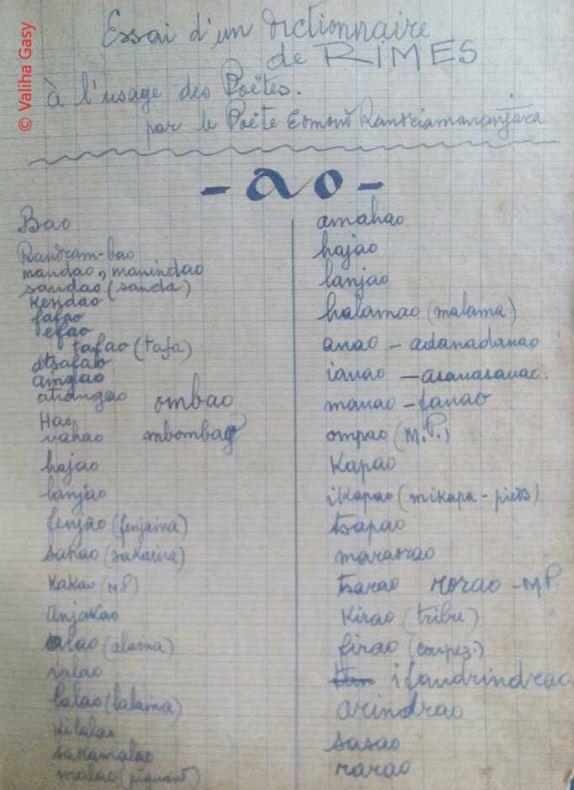 © Valiha Gasy
Essai d'un dictionnaire
de RIMES
à l'usage des Poëtes.
par le Poëte
- ao -
Bao
mandao, manindao
sandao (sanda)
Kendao
fafao
efao
tafao (tafa)
atsafao
aingao
atrangao
ombao
Hao
vahao
hajao
lanjao
fenjao (fenjaina)
sakao (sakaina)
Kakao (M.P)
anjakao
alao (alaina)
valao
lalao (lalaina)
Kilalao
sakamalao
malao (piquant)
amahao
hajao
lanjao
halamao (malama)
anao - adanadanao
ianao - asanasanao.
manao - fanao
ompao (M.P.)
Kapao
ikapao (mikapa - piets)
tsapao
mararao
tsarao rorao - M.P.
Kirao (tribu)
firao (coupez.)
arindrao
sasao
rarao